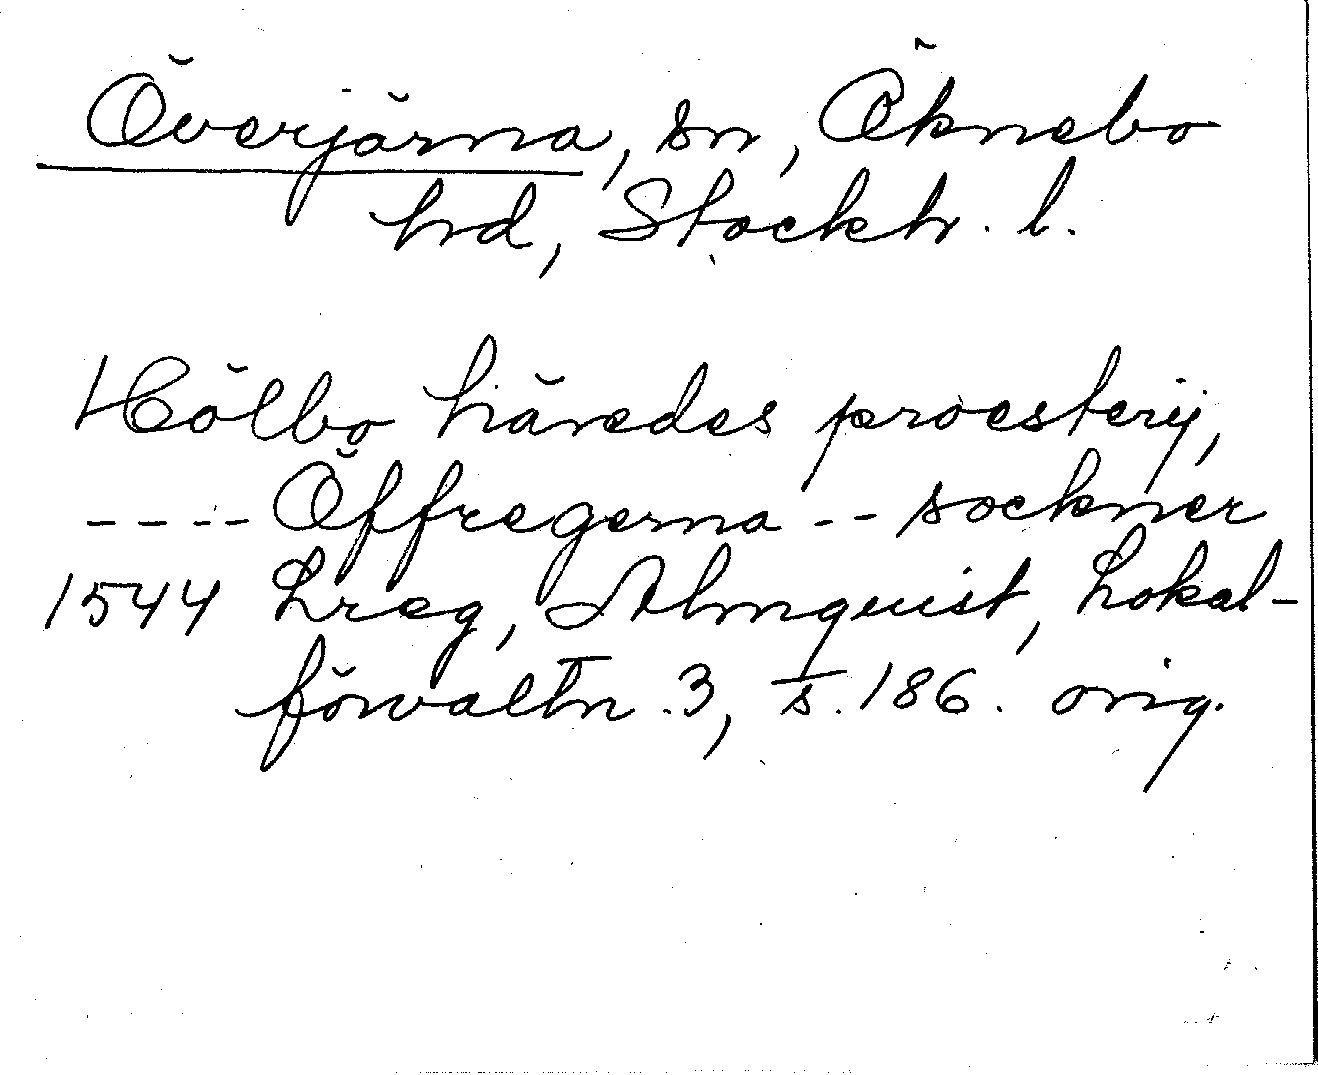 Överjärna, sn, Öknebo
hd, Stockh. l.
Hölbo häredes proesterij,
---- Öffregerna -- sockner
1544 Lreg, Almquist, Lokal-
förvaltn. 3, s. 186. orig.